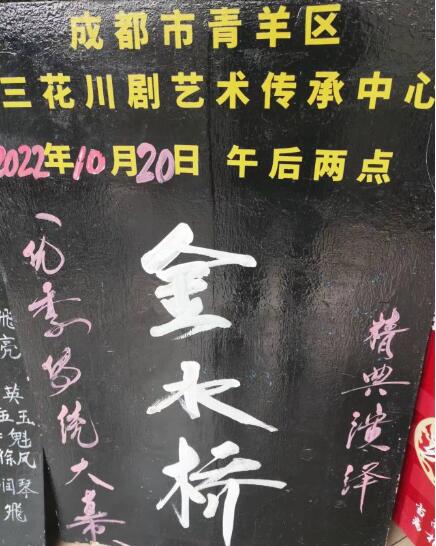 成都市青羊区
三花川剧艺术传承中心
2022年10月20日 午后两点
金水桥
精典演绎
优秀传统大幕
飛
亮
英
玉
魁
徐凤
琴
飛